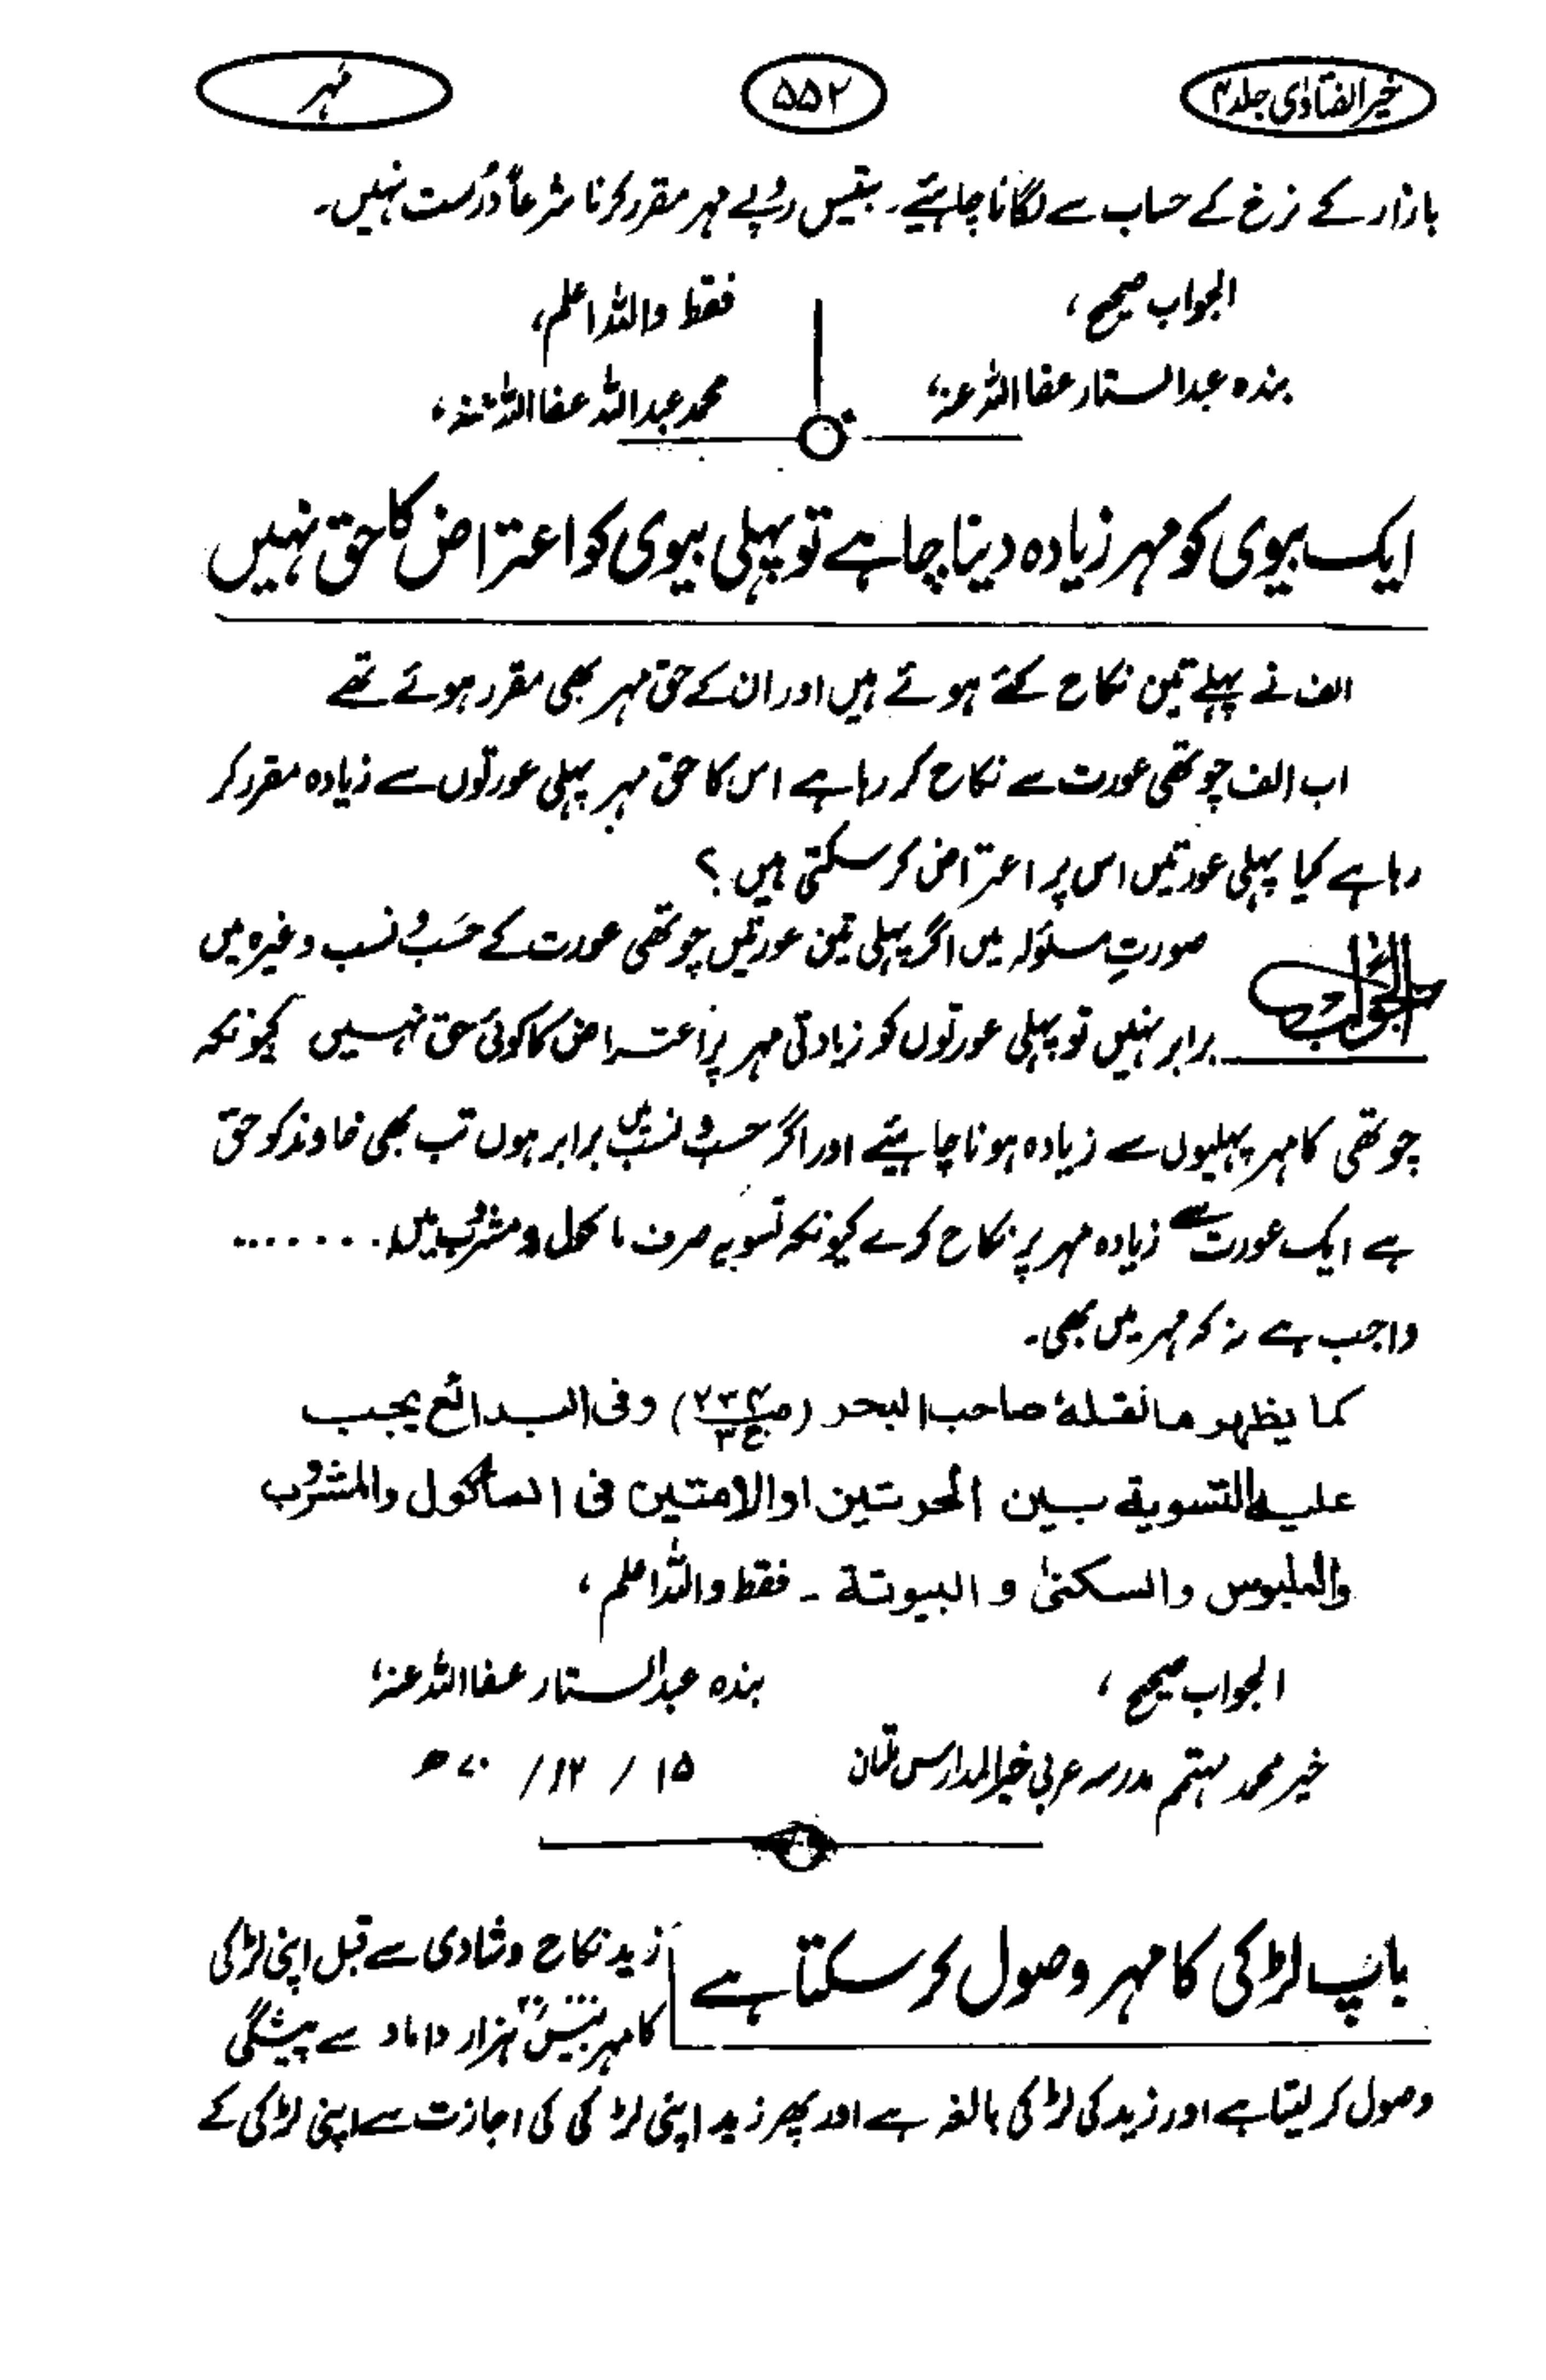 خیر الفتاوٰی جلد ۴
۵۵۲
مہر
بازار کے نرخ کے حساب سے لگانا چاہیئے۔ بتیس روپے مہر مقرر کرنا شرعاً درست نہیں۔
الجواب صحیح، فقط واللہ اعلم،
بندہ عبدالستار عفا اللہ عنہ، محمد عبداللہ عفا اللہ عنہ،
ایک بیوی کو مہر زیادہ دینا چاہے تو پہلی بیوی کو اعتراض کا حق نہیں
الف نے پہلے تین نکاح کئے ہوئے ہیں اور ان کے حق مہر بھی مقرر ہوئے تھے
اب الف چوتھی عورت سے نکاح کر رہا ہے اس کا حق مہر پہلی عورتوں سے زیادہ مقرر کر
رہا ہے کیا پہلی عورتیں اس پر اعتراض کر سکتی ہیں؟
الجواب صورتِ مسئولہ میں اگر پہلی تین عورتیں چوتھی عورت کے حسَب و نسب وغیرہ میں
برابر نہیں تو پہلی عورتوں کو زیادتی مہر پر اعتراض کا کوئی حق نہیں کیونکہ
چوتھی کا مہر پہلیوں سے زیادہ ہونا چاہیئے اور اگر حسب و نسب میں برابر ہوں تب بھی خاوند کو حق
ہے ایک عورت سے زیادہ مہر پر نکاح کرے کیونکہ تسویہ صرف ماکول و مشروب میں ........
واجب ہے نہ کہ مہر میں بھی۔
کما یظہر مما نقلہٗ صاحب البحر (ص۲۳۴ ج۳) وفی البدائع یجب
علیہ التسویة بین الحرتین او الامتین فی الماکول والمشروب
والملبوس والسکنیٰ و البیوتة ۔ فقط واللہ اعلم،
الجواب صحیح، بندہ عبدالستار عفا اللہ عنہ،
خیر محمد مہتمم مدرسہ عربی خیر المدارس ملتان ۱۵ / ۱۲ / ۷۰ ھ
باپ لڑکی کا مہر وصول کر سکتا ہے
زید نکاح و شادی سے قبل اپنی لڑکی
کا مہر ہزار داماد سے پیشگی
وصول کر لیتا ہے اور زید کی لڑکی بالغہ ہے اور پھر زید اپنی لڑکی کی اجازت سے اپنی لڑکی کے